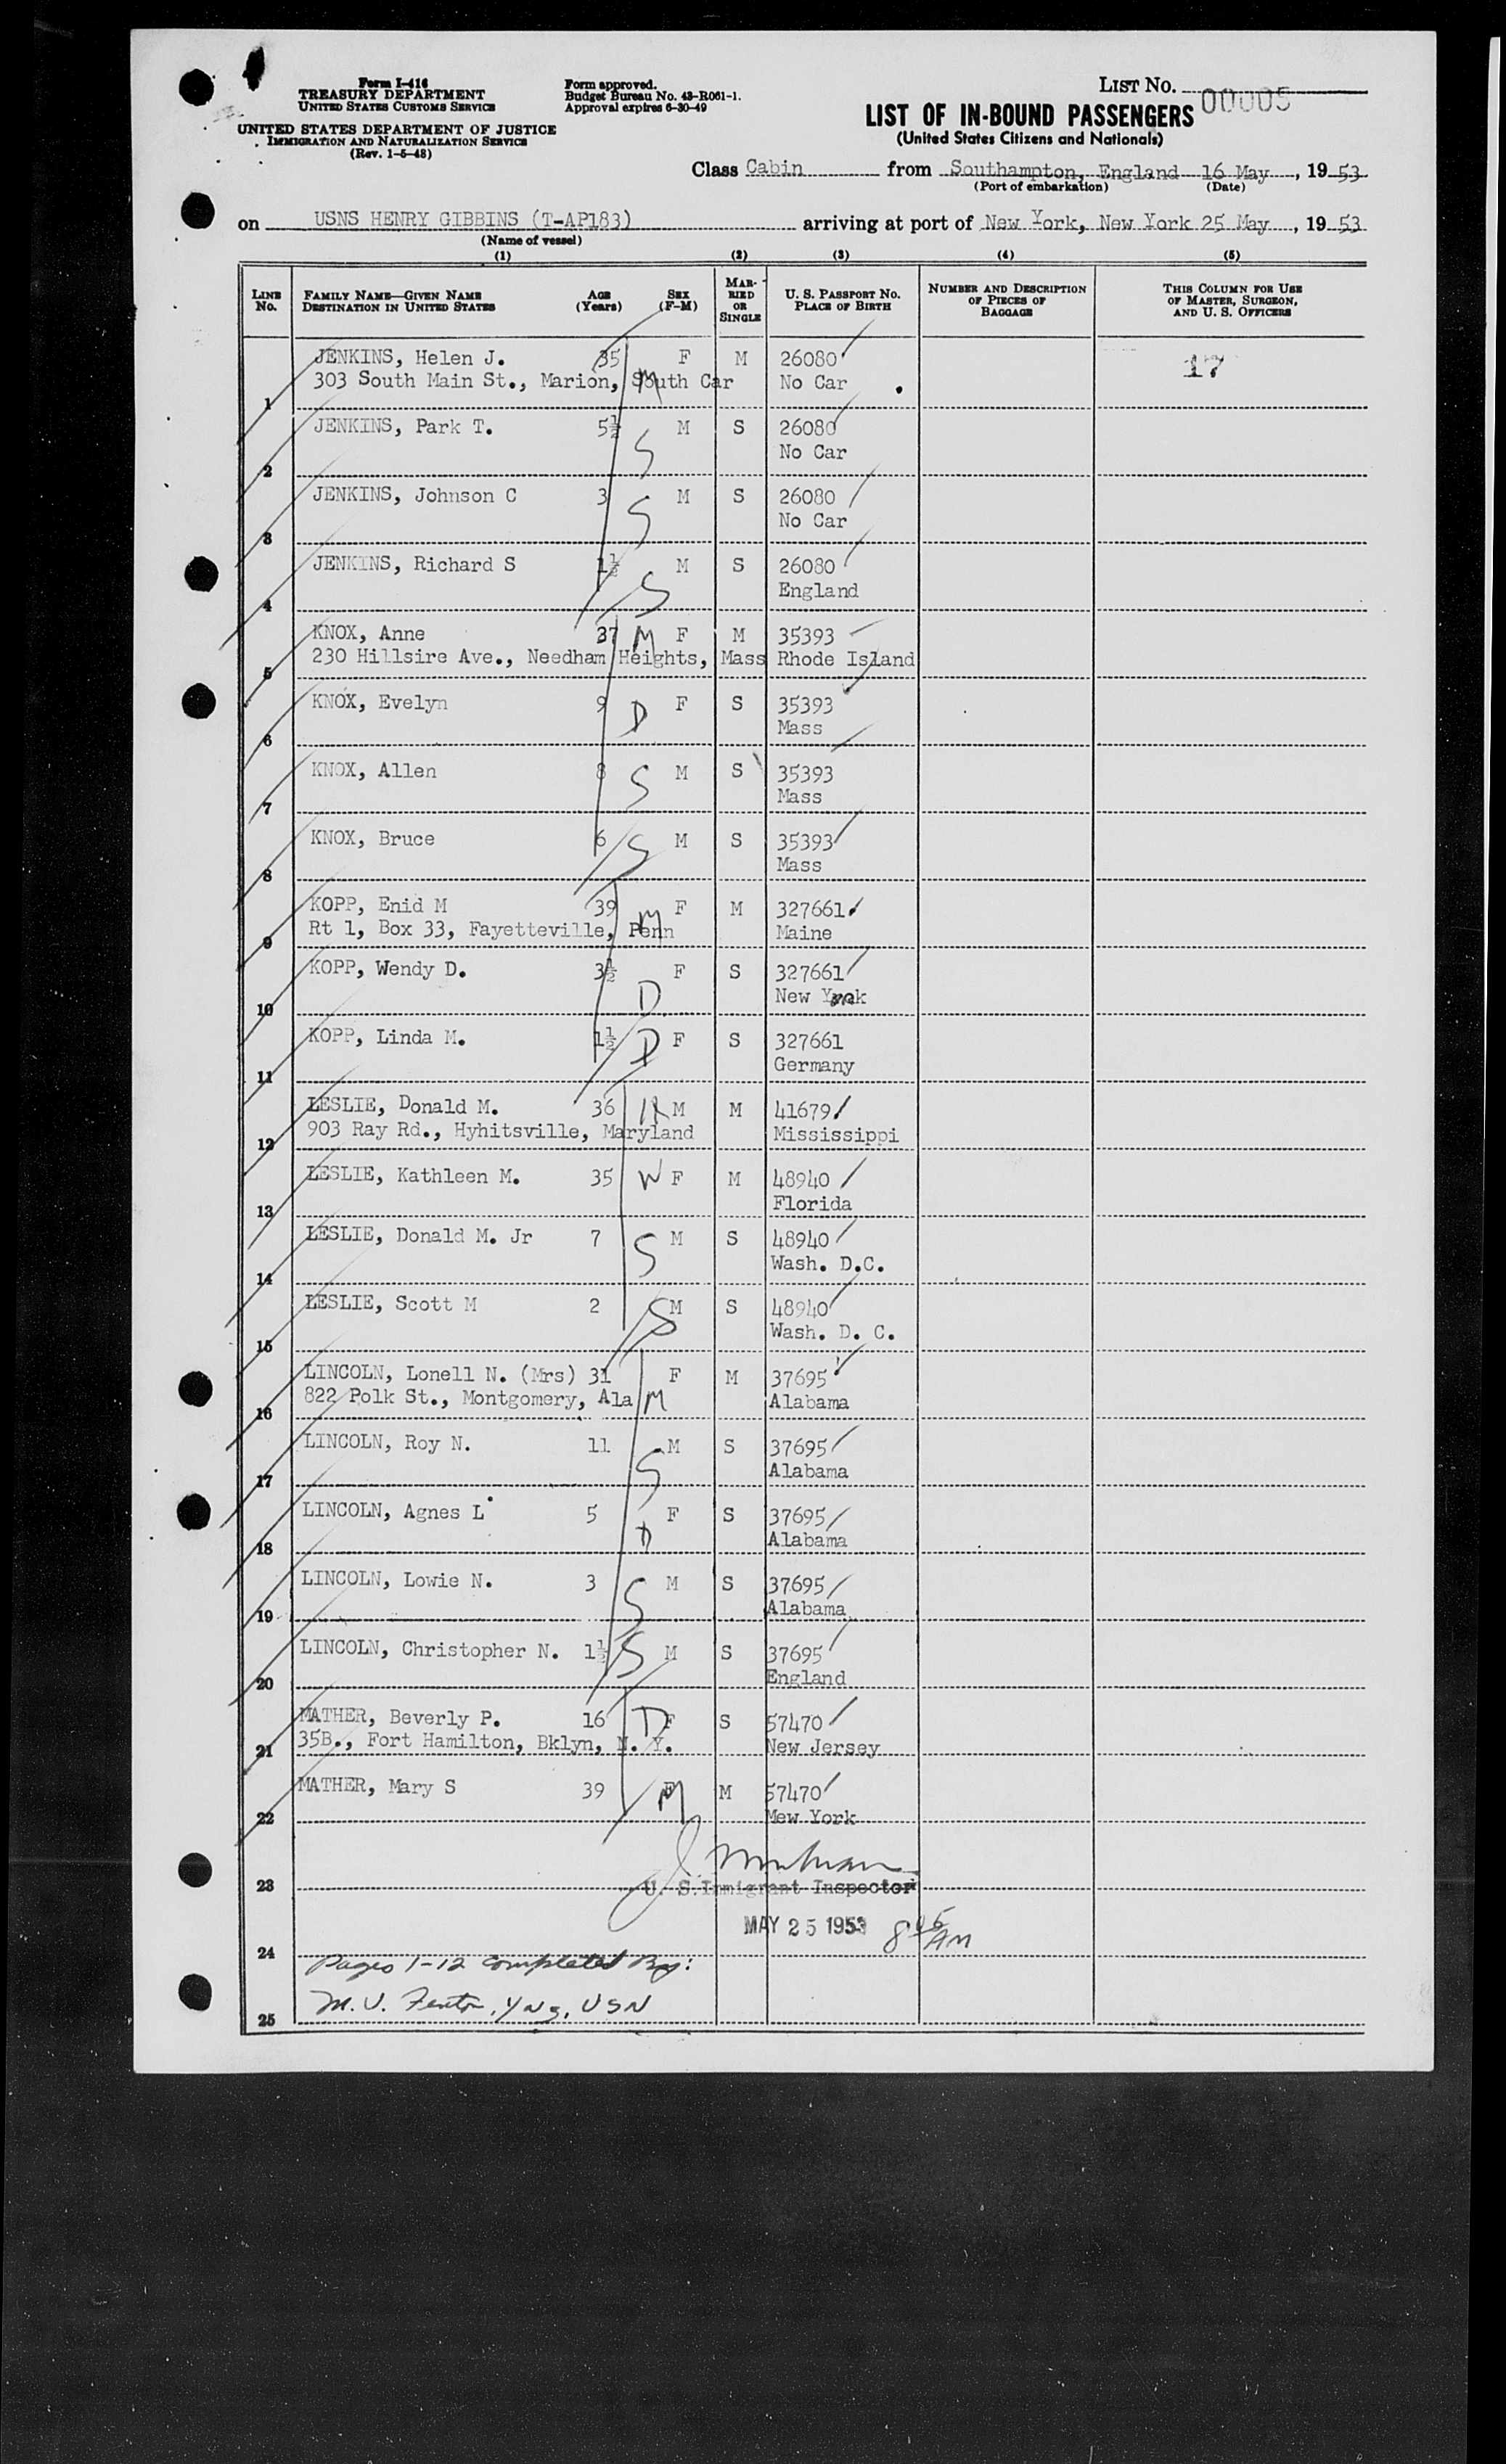 Form I-416
TREASURY DEPARTMENT
UNITED STATES CUSTOMS SERVICE
UNITED STATES DEPARTMENT OF JUSTICE
IMMIGRATION AND NATURALIZATION SERVICE
(Rev. 1-5-48)
Form approved.
Budget Bureau No. 43-R061-1.
Approval expires 6-30-49
LIST NO. 00005
LIST OF IN-BOUND PASSENGERS
(United States Citizens and Nationals)
Class Cabin from Southampton, England 16 May, 1953
(Port of embarkation) (Date)
on USNS HENRY GIBBINS (T-AP183) arriving at port of New York, New York 25 May, 1953
(Name of vessel)
(1) (2) (3) (4) (5)
LINE NO. FAMILY NAME—GIVEN NAME DESTINATION IN UNITED STATES AGE (Years) SEX (F-M) MARRIED OR SINGLE U. S. PASSPORT NO. PLACE OF BIRTH NUMBER AND DESCRIPTION OF PIECES OF BAGGAGE THIS COLUMN FOR USE OF MASTER, SURGEON, AND U. S. OFFICERS
JENKINS, Helen J. 35 F M 26080 17
1 303 South Main St., Marion, South Car M No Car
JENKINS, Park T. 5½ M S 26080
2 S No Car
JENKINS, Johnson C 3 M S 26080
3 S No Car
JENKINS, Richard S 1½ M S 26080
4 S England
KNOX, Anne 37 M F M 35393
5 230 Hillsire Ave., Needham Heights, Mass Rhode Island
KNOX, Evelyn 9 D F S 35393
6 Mass
KNOX, Allen 8 S M S 35393
7 Mass
KNOX, Bruce 6 S M S 35393
8 Mass
KOPP, Enid M 39 M F M 327661
9 Rt 1, Box 33, Fayetteville, Penn Maine
KOPP, Wendy D. 3½ F S 327661
10 D New York
KOPP, Linda M. 1½ D F S 327661
11 Germany
LESLIE, Donald M. 36 H M M 41679
12 903 Ray Rd., Hyhitsville, Maryland Mississippi
LESLIE, Kathleen M. 35 W F M 48940
13 Florida
LESLIE, Donald M. Jr 7 S M S 48940
14 Wash. D.C.
LESLIE, Scott M 2 S M S 48940
15 Wash. D. C.
LINCOLN, Lonell N. (Mrs) 31 F M 37695
16 822 Polk St., Montgomery, Ala M Alabama
LINCOLN, Roy N. 11 S M S 37695
17 Alabama
LINCOLN, Agnes L 5 F S 37695
18 D Alabama
LINCOLN, Lowie N. 3 S M S 37695
19 Alabama
LINCOLN, Christopher N. 1½ S M S 37695
20 England
MATHER, Beverly P. 16 D F S 57470
21 35B., Fort Hamilton, Bklyn, N. Y. New Jersey
MATHER, Mary S 39 M F M 57470
22 Mew York
23 U. S. Immigrant Inspector
MAY 25 1953 8 45 AM
24
Pages 1-12 completed By:
25 M. V. Fenton, YN3, USN